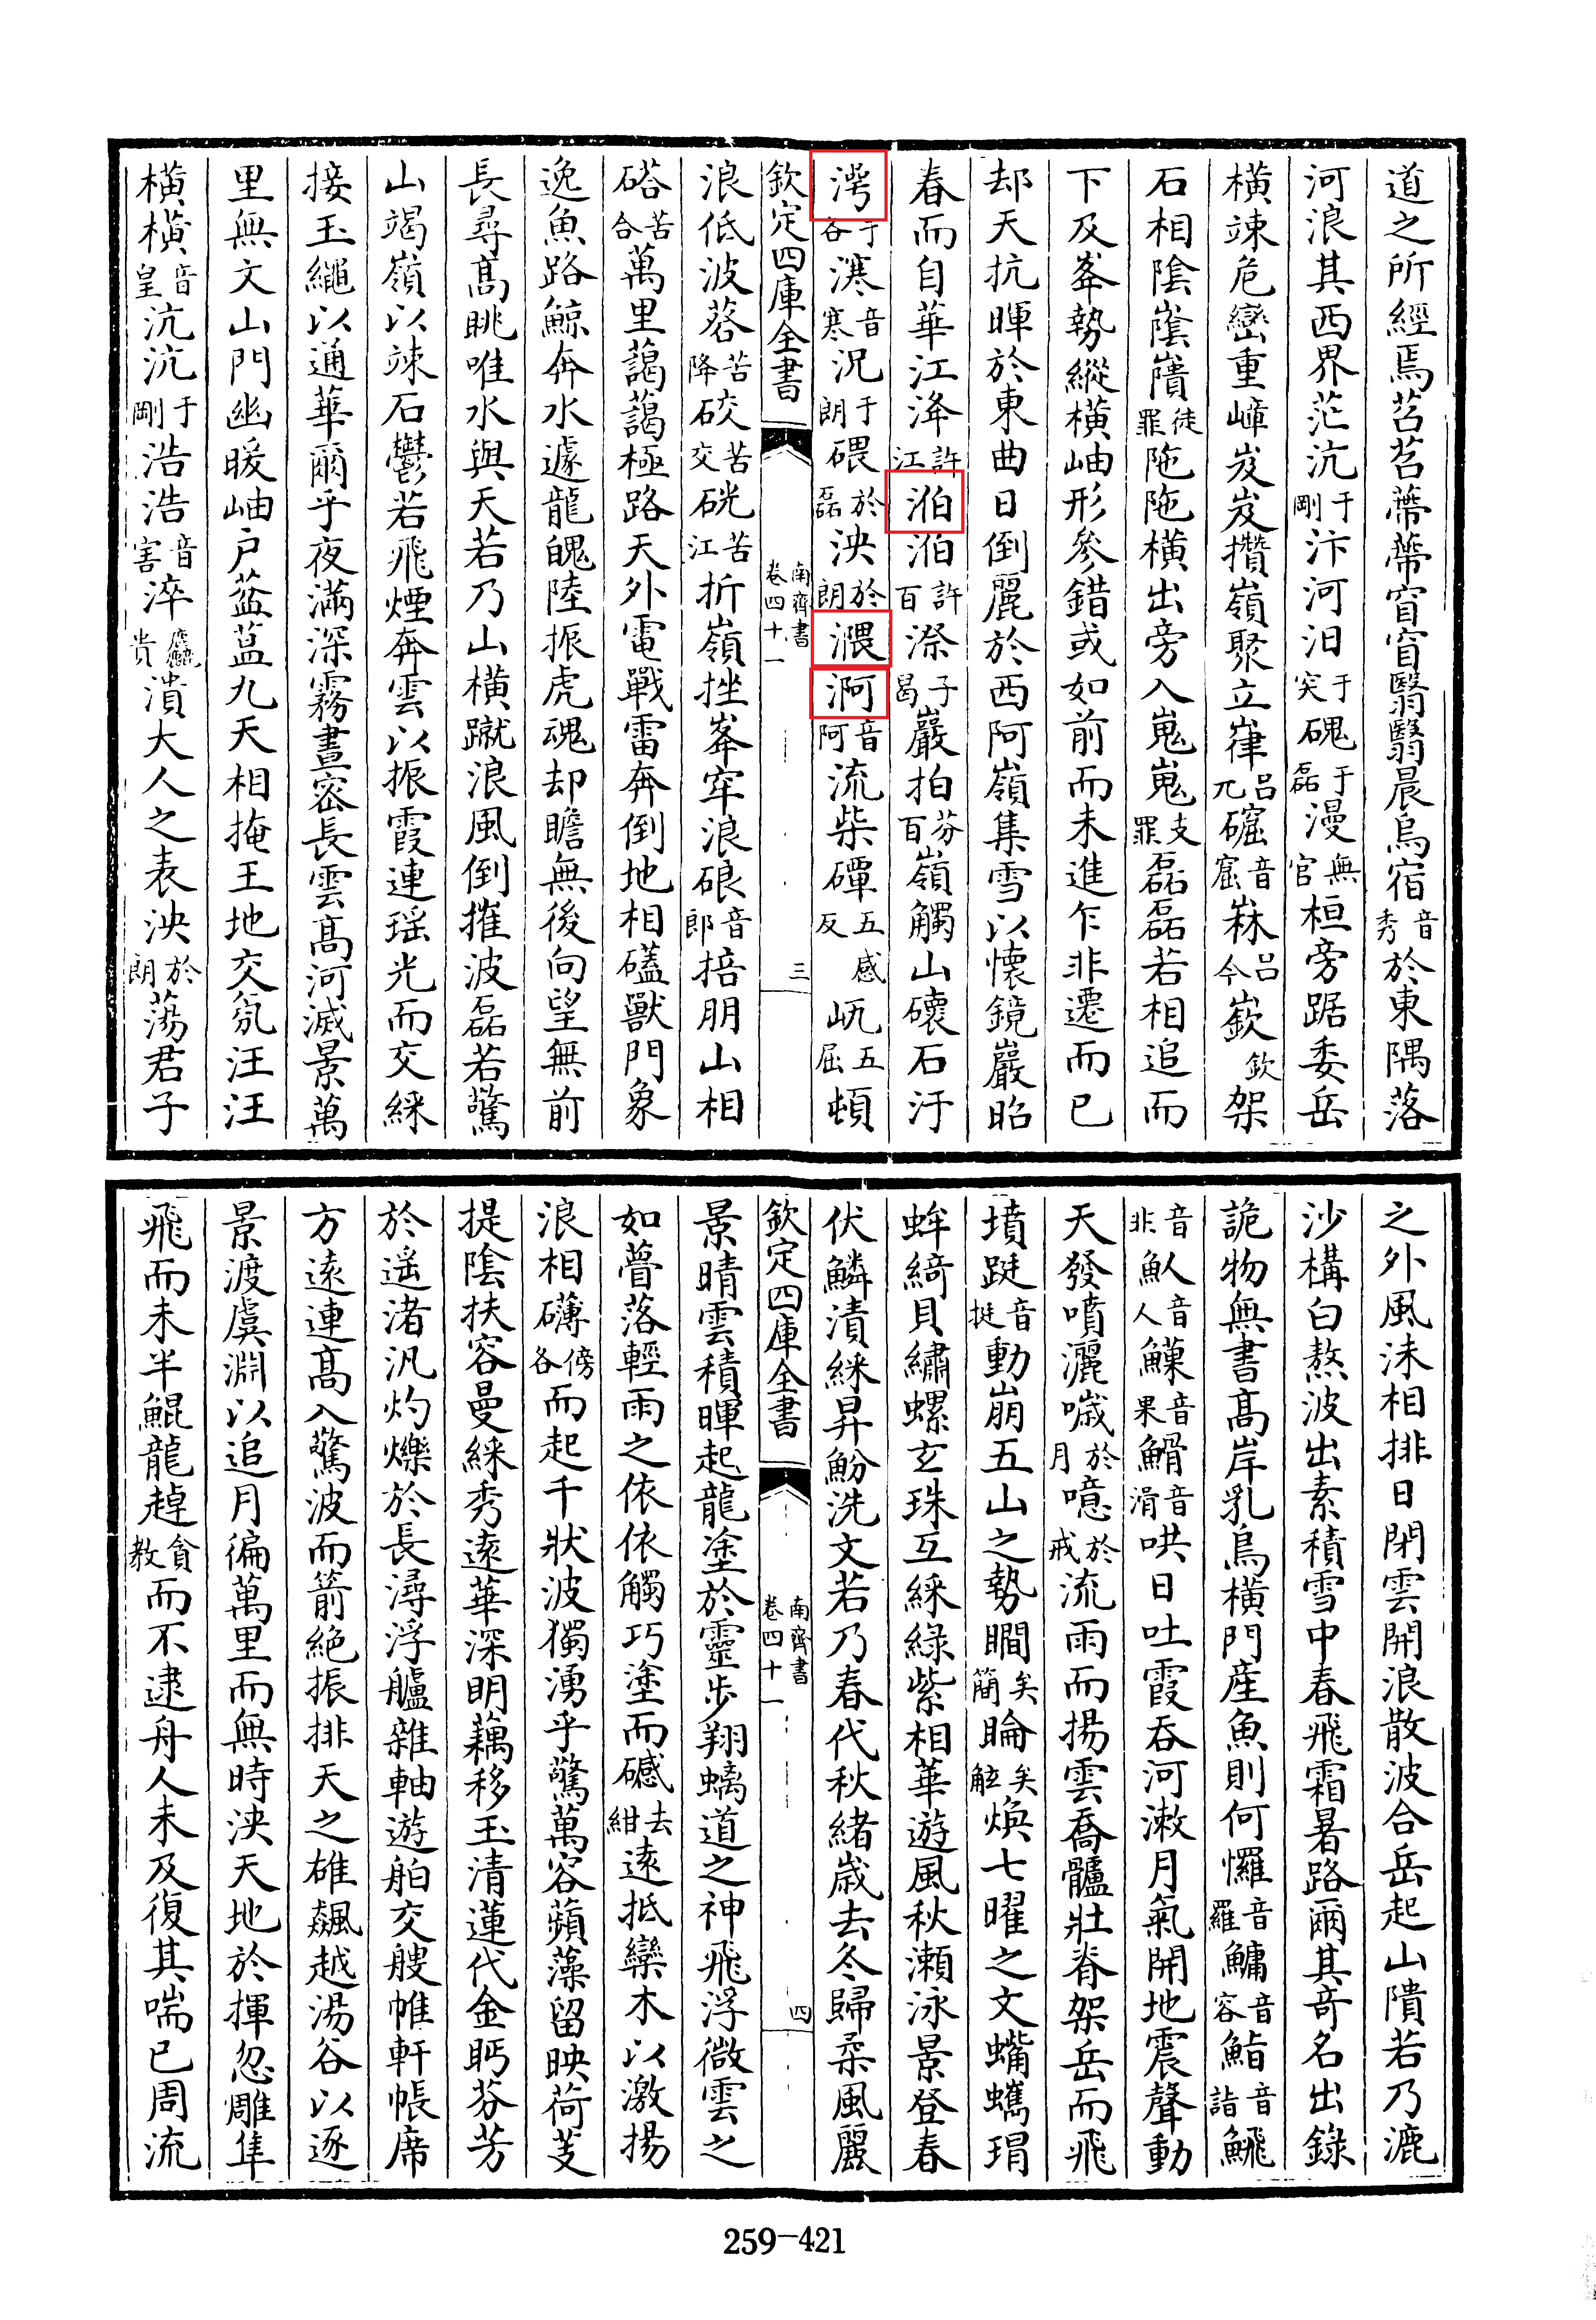 道之所經焉苕苕蔕蔕窅窅翳翳晨烏宿音秀於東隅落
河浪其西界茫沆于剛汴河汩于突磈于磊漫無官桓旁踞委岳
橫竦危巒重嶂岌岌攢嶺聚立嵂呂兀䃮音窟嵀呂今嶔欽架
石相陰䧹隤徒罪陁陁橫出旁入嵬嵬支罪磊磊若相追而
下及峯勢縱橫岫形參錯或如前而未進乍非遷而已
却天抗暉於東曲日倒麗於西阿嶺集雪以懷鏡巖昭
春而自華江洚許江洦洦許百漈子曷巖拍芬百嶺觸山磢石汙
𣽎于各㴂音寒況于朗碨於磊泱於朗㵎㵑音阿流柴磹五感反屼五屈頓
欽定四庫全書
南齊書
卷四十一
三
浪低波䂫苦降䂭苦交硄苦江折嶺挫峯窂浪硠音郎掊朋山相
㗳苦合萬里藹藹極路天外電戰雷奔倒地相礚獸門象
逸魚路鯨奔水遽龍魄陸振虎魂却瞻無後向望無前
長尋髙眺唯水與天若乃山橫蹴浪風倒摧波磊若驚
山竭嶺以竦石鬱若飛煙奔雲以振霞連瑶光而交綵
接玉繩以通華爾乎夜滿深霧晝密長雲髙河滅景萬
里無文山門幽暖岫户葐蒀九天相掩玉地交氛汪汪
橫橫音皇沆沆于剛浩浩音害淬麤貴潰大人之表泱於朗蕩君子
之外風沬相排日閉雲開浪散波合岳起山隤若乃漉
沙構白熬波出素積雪中春飛霜暑路爾其奇名出錄
詭物無書髙岸乳鳥橫門產魚則何㦬音羅鱅音容鮨音詣䱀
音非䰲音人䱔音果䱻音滑哄日吐霞吞河漱月氣開地震聲動
天發噴灑噦於月噫於戒流雨而揚雲喬髗壯脊架岳而飛
墳䟓音挺動崩五山之勢瞷矣簡睔矣䚇煥七曜之文蠵蠵瑁
蛑綺貝繡螺玄珠互綵綠紫相華遊風秋瀨泳景登春
伏鱗漬綵昇魵洗文若乃春代秋緒歲去冬歸柔風麗
欽定四庫全書
南齊書
卷四十一
四
景晴雲積暉起龍塗於靈步翔螭道之神飛浮微雲之
如瞢落輕雨之依依觸巧塗而礈去紺遠抵欒木以激揚
浪相礴傍各而起千狀波獨湧乎驚萬容蘋藻留映荷芰
提陰扶容曼綵秀遠華深明藕移玉清蓮代金眄芬芳
於遥渚汎灼爍於長潯浮艫雜軸遊舶交艘帷軒帳席
方遠連髙入驚波而箭絕振排天之雄飊越湯谷以逐
景渡虞淵以追月徧萬里而無時浹天地於揮忽雕隼
飛而未半鯤龍趠貪教而不逮舟人未及復其喘已周流
259-421